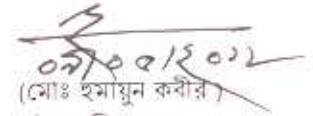 ০৯/০৫/২০২২
(মোঃ হুমায়ুন কবীর)